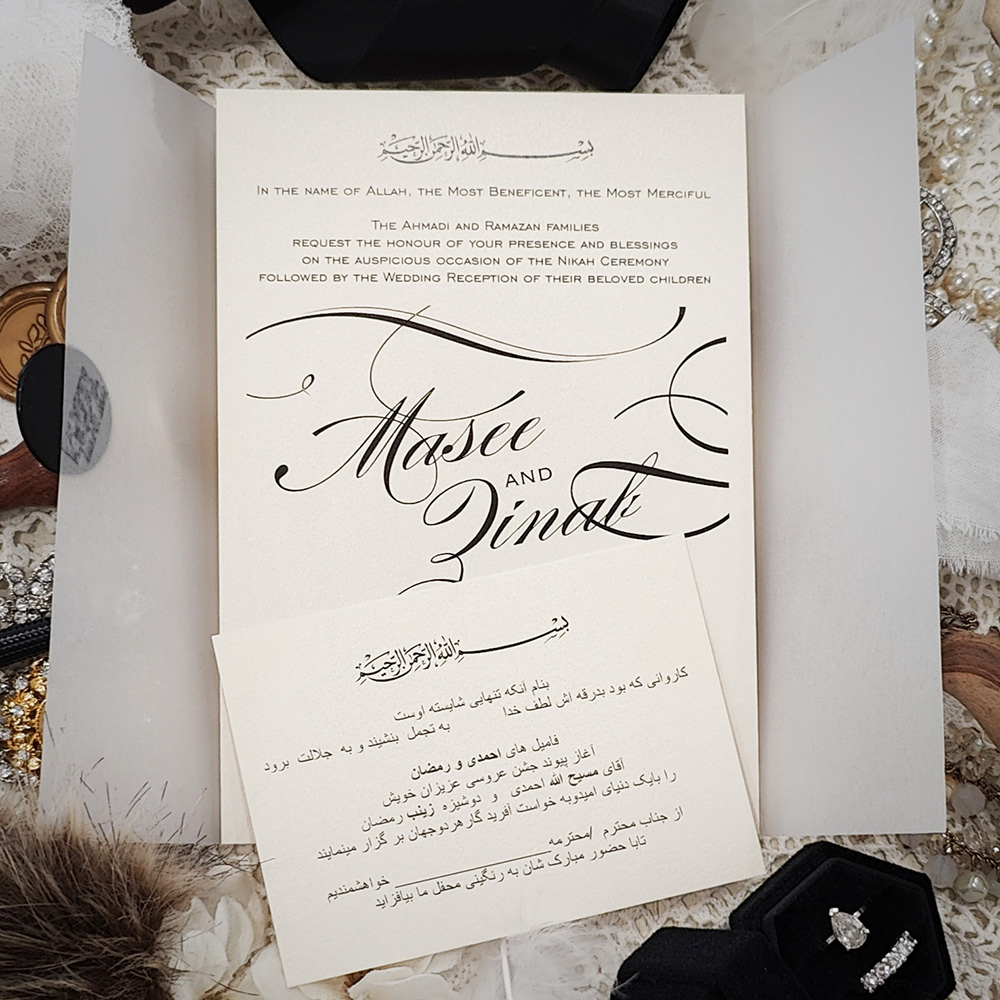 بسم الله الرحمن الرحيم
IN THE NAME OF ALLAH, THE MOST BENEFICENT, THE MOST MERCIFUL
THE AHMADI AND RAMAZAN FAMILIES
REQUEST THE HONOUR OF YOUR PRESENCE AND BLESSINGS
ON THE AUSPICIOUS OCCASION OF THE NIKAH CEREMONY
FOLLOWED BY THE WEDDING RECEPTION OF THEIR BELOVED CHILDREN
Masee
AND
Zinab
بسم الله الرحمن الرحيم
بنام آنکه تنهایی شایسته اوست
کاروانی که بود بدرقه اش لطف خدا
به تجمل بنشیند و به جلالت برود
فامیل های احمدی و رمضان
آغاز پیوند جشن عروسی عزیزان خویش
آقای مسیح الله احمدی و دوشیزه زینب رمضان
را بایک دنیای امیدوبه خواست آفرید گارهردوجهان بر گزار مینمایند
از جناب محترم /محترمه
خواهشمندیم
تابا حضور مبارک شان به رنگینی محفل ما بیافزاید